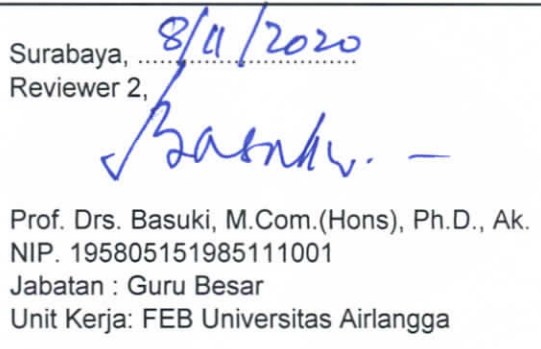 Surabaya, 8/11/2020
Reviewer 2,
Basuki. -
Prof. Drs. Basuki, M.Com.(Hons), Ph.D., Ak.
NIP. 195805151985111001
Jabatan : Guru Besar
Unit Kerja: FEB Universitas Airlangga